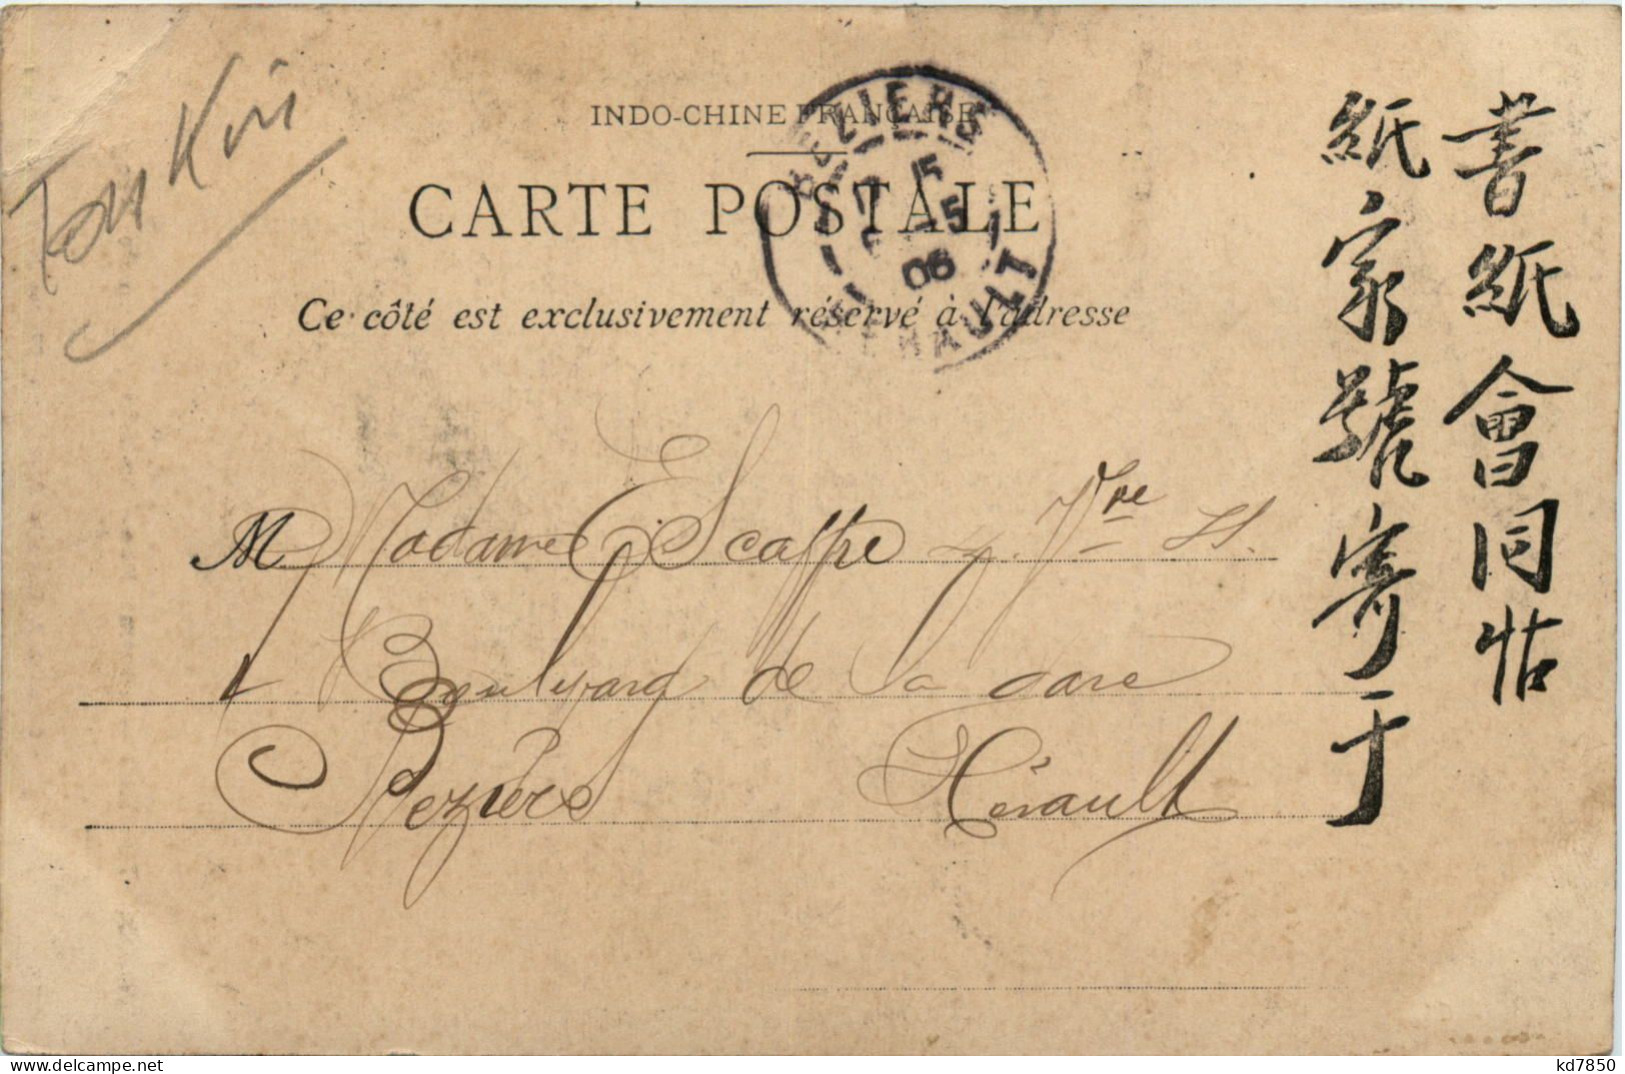 Tonkin
INDO-CHINE FRANÇAISE
CARTE POSTALE
Ce côté est exclusivement réservé à l'adresse
BEZIERS
5
06
HERAULT
M Madame Scaffre
Boulevard de la Gare
Beziers Hérault
書紙會同帖
紙家號寄于
kd7850